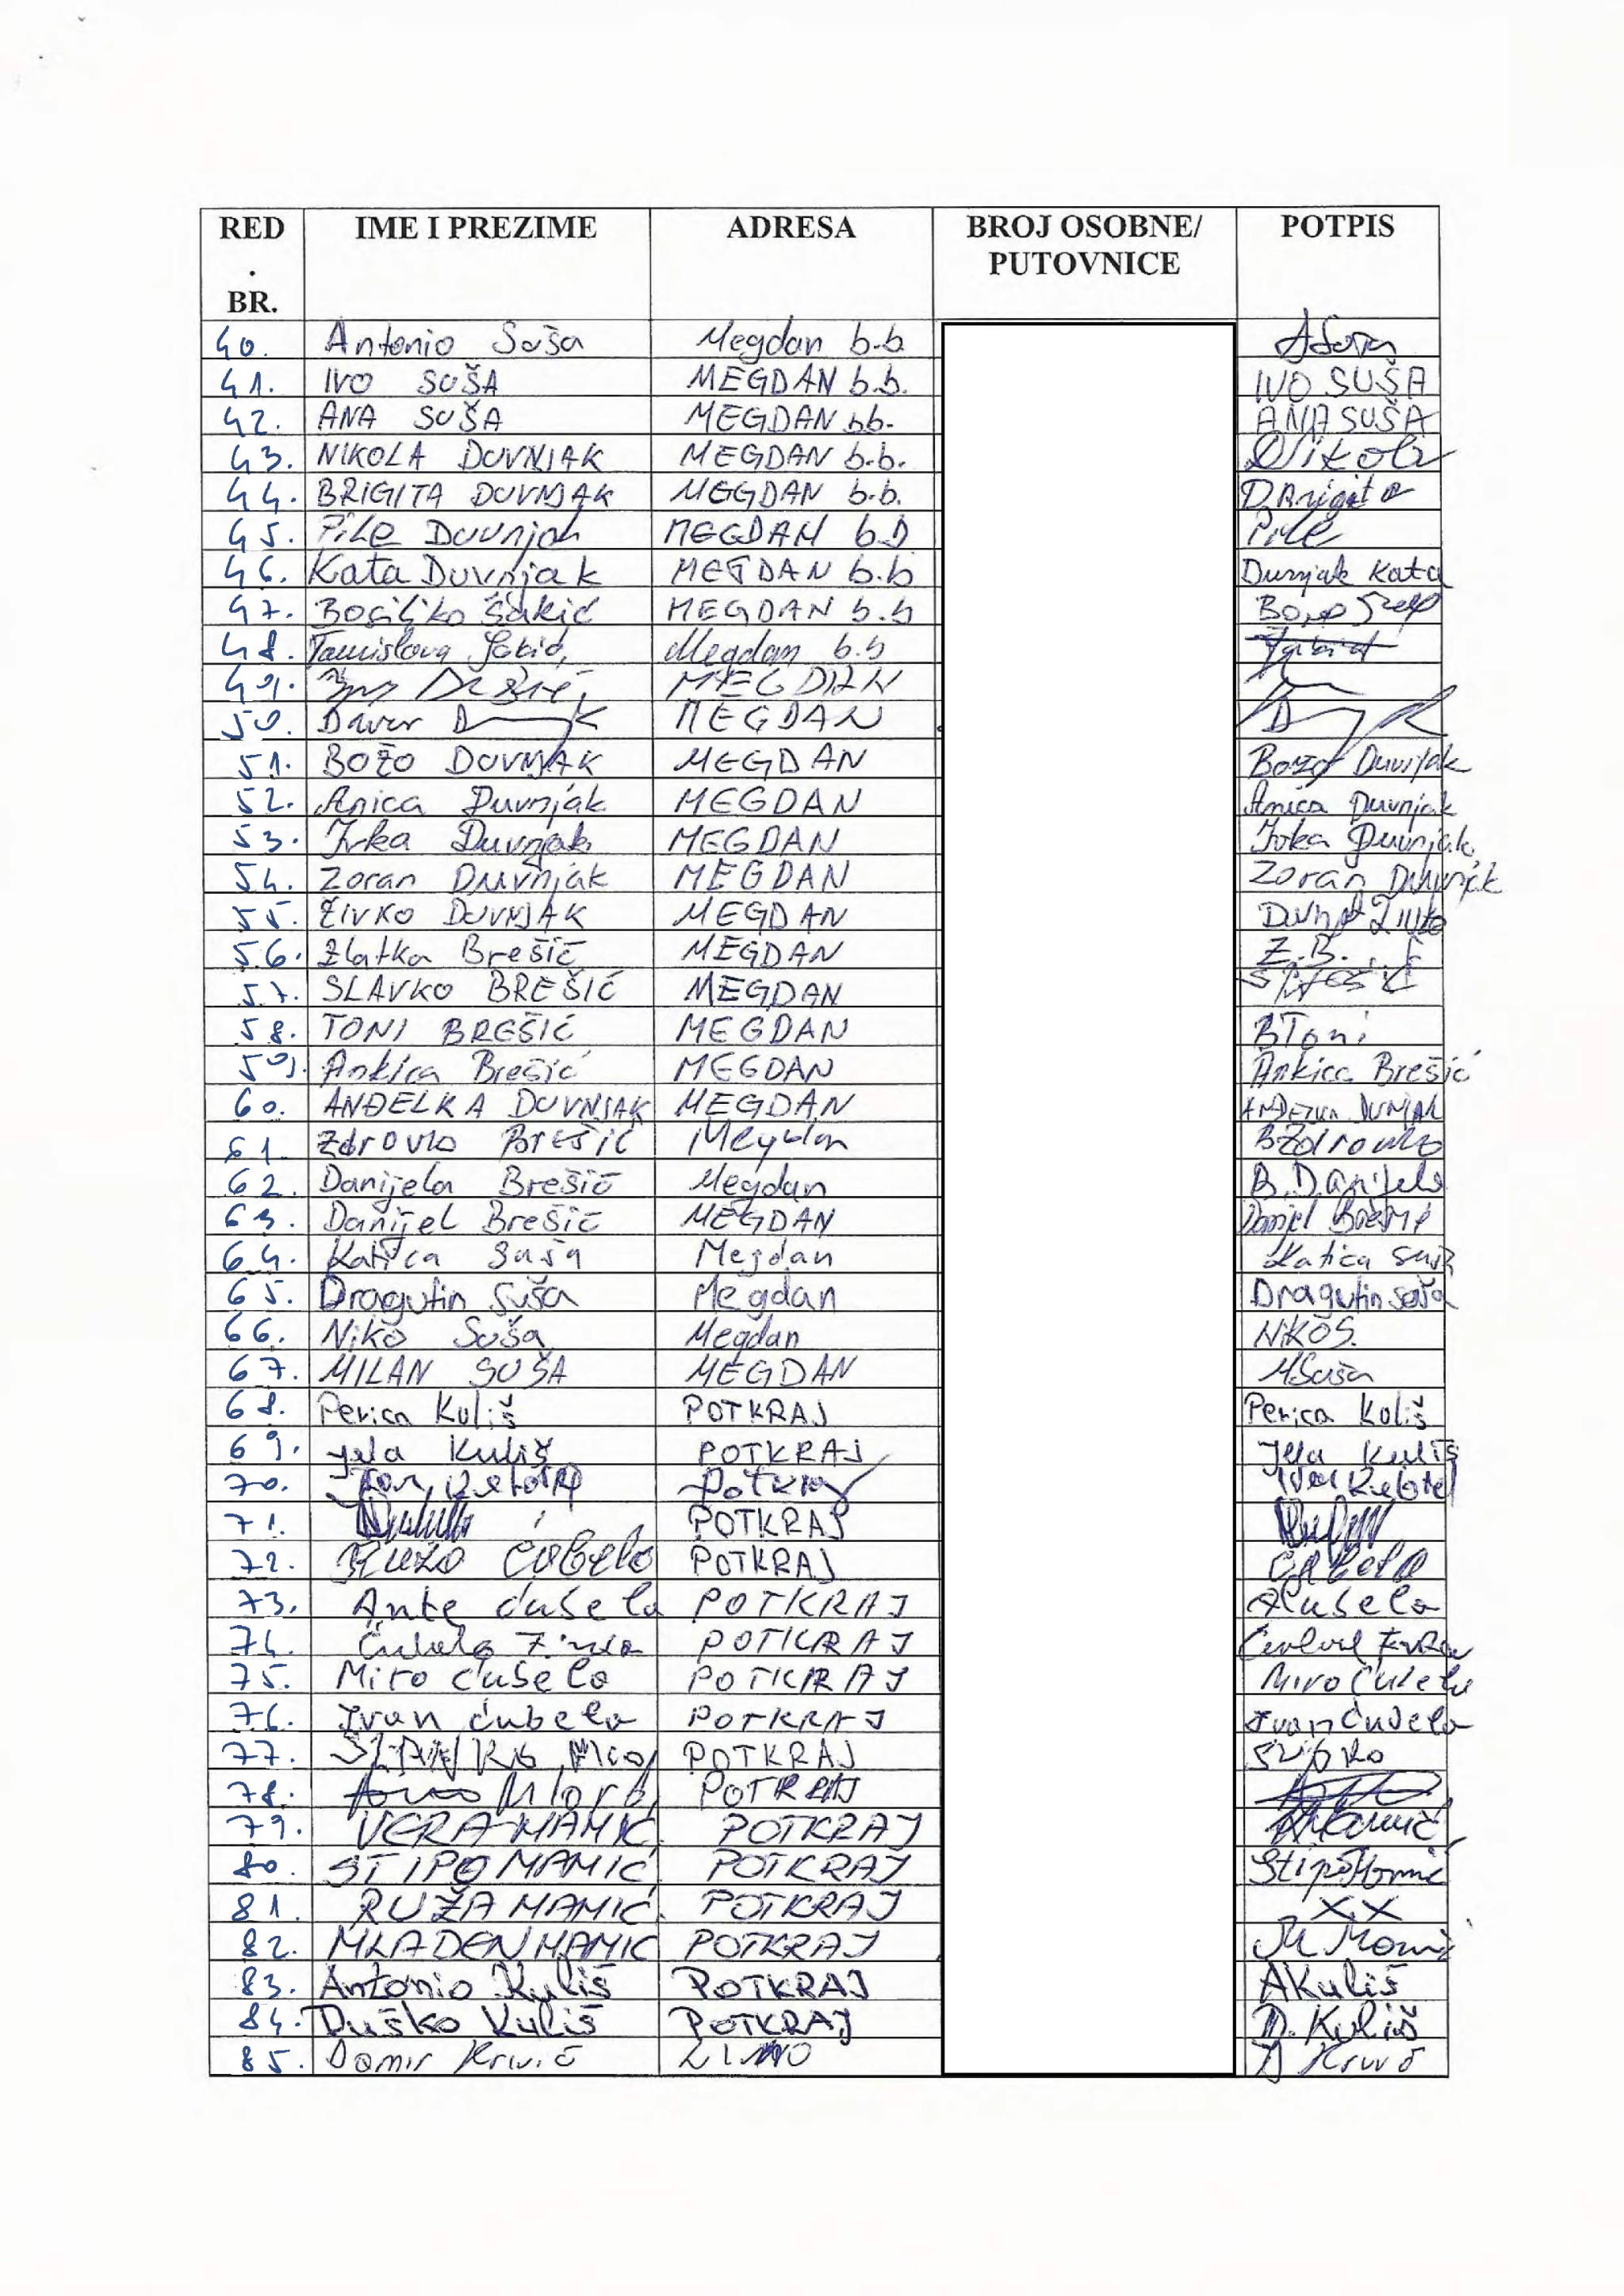 RED . BR. IME I PREZIME ADRESA BROJ OSOBNE/ PUTOVNICE POTPIS
40. Antonio Suša Megdan b.b
41. IVO SUŠA MEGDAN b.b. IVO SUŠA
42. ANA SUŠA MEGDAN bb. ANA SUŠA
43. NIKOLA DUVNJAK MEGDAN b.b. Nikola
44. BRIGITA DUVNJAK MEGDAN b.b. D.Brigita
45. Pile Duvnjak MEGDAN b.b Pile
46. Kata Duvnjak MEGDAN b.b Duvnjak Kata
47. Bosiljko Šakić MEGDAN b.b
48. Tomislava Šakić Megdan b.b
49. MEGDAN
50. Davor MEGDAN
51. BOŽO DUVNJAK MEGDAN Božo Duvnjak
52. Anica Duvnjak MEGDAN Anica Duvnjak
53. Ivka Duvnjak MEGDAN Ivka Duvnjak
54. Zoran Duvnjak MEGDAN Zoran Duvnjak
55. ŽIVKO DUVNJAK MEGDAN
56. Zlatka Brešić MEGDAN Z.B.
57. SLAVKO BREŠIĆ MEGDAN
58. TONI BREŠIĆ MEGDAN BToni
59. Ankica Brešić MEGDAN Ankica Brešić
60. ANĐELKA DUVNJAK MEGDAN
61. Zdravko Brešić Megdan BZdravko
62. Danijela Brešić Megdan B.Danijela
63. Danijel Brešić MEGDAN Danijel Brešić
64. Katica Suša Megdan Katica Suša
65. Dragutin Suša Megdan Dragutin Suša
66. Niko Suša Megdan NIKO S.
67. MILAN SUŠA MEGDAN M.Suša
68. Perica Kuliš POTKRAJ Perica Kuliš
69. Jela Kuliš POTKRAJ Jela Kuliš
70. Potkraj
71. POTKRAJ
72. Ćubela POTKRAJ Ćubela
73. Ante Ćubela POTKRAJ AĆubela
74. Ćubela POTKRAJ
75. Miro Ćubela POTKRAJ Miro Ćubela
76. Ivan Ćubela POTKRAJ Ivan Ćubela
77. POTKRAJ
78. POTKRAJ
79. VERA MAMIĆ POTKRAJ
80. STIPO MAMIĆ POTKRAJ Stipo Mamić
81. RUŽA MAMIĆ POTKRAJ XX
82. MLADEN MAMIĆ POTKRAJ M Mamić
83. Antonio Kuliš POTKRAJ AKuliš
84. Duško Kuliš POTKRAJ D. Kuliš
85. Damir